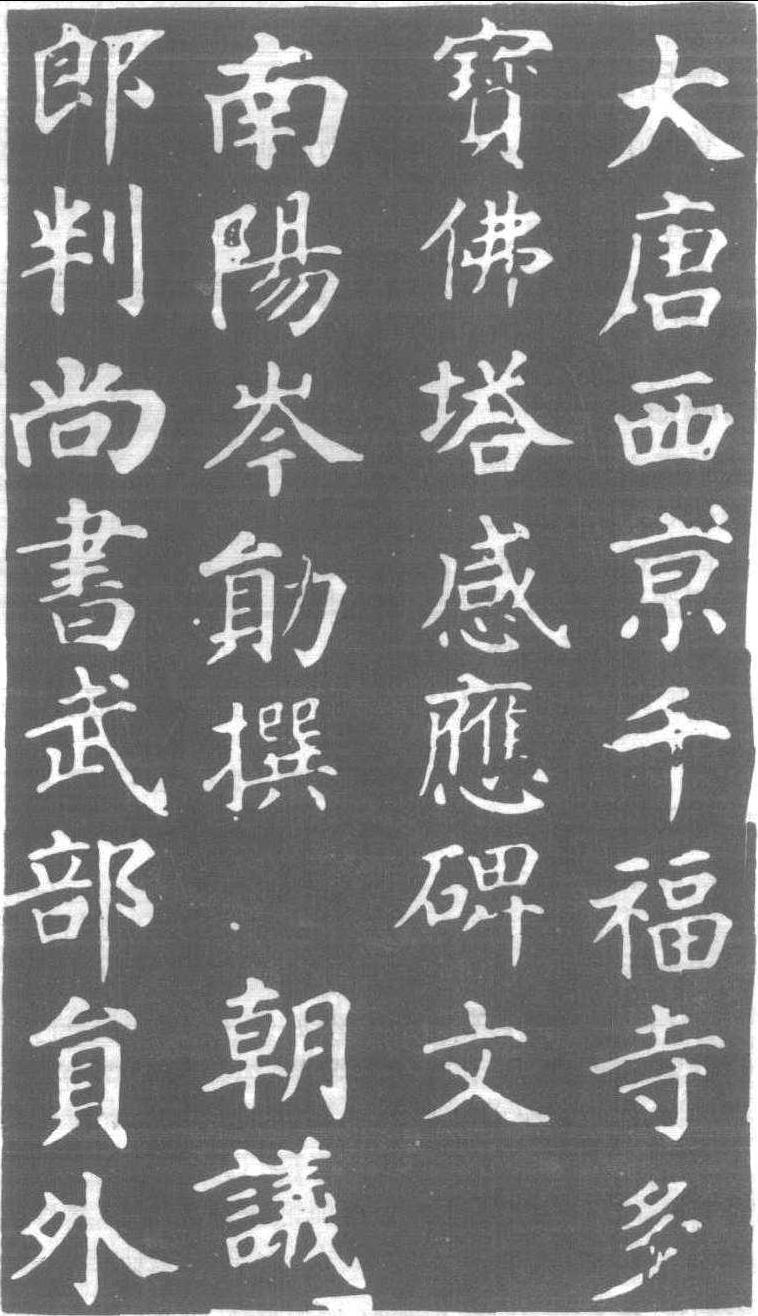 大唐西京千福寺多
寶佛塔感應碑文
南陽岑勛撰 朝議
郎判尚書武部員外